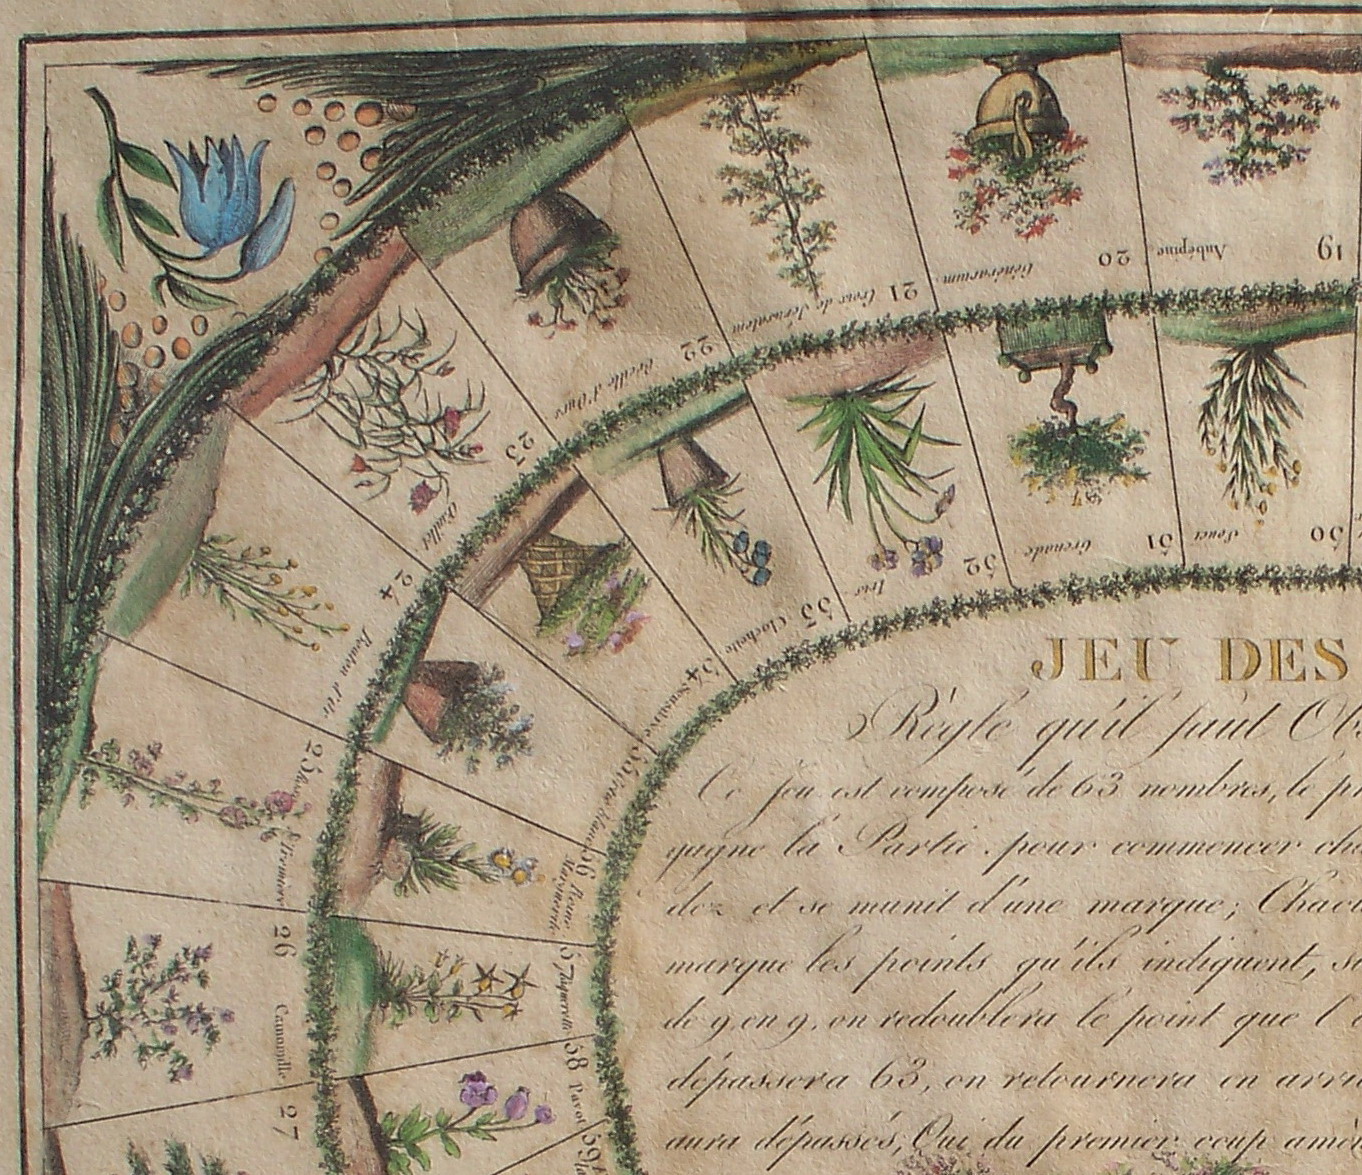 JEU DES
Règle qu'il faut Obs
Ce Jeu est composé de 63 nombres, le pr
gagne la Partie. pour commencer cha
dez et se munit d'une marque; Chacu
marque les points qu'ils indiquent, s
de 9 en 9, on redoublera le point que l'a
dépassera 63, on retournera en arri
aura dépassés, Qui du premier coup amèn
Aubépine 19
Géneranium 20
Croix de Jérusalem 21
Oreille d'Ours 22
Œuillet 23
Bouton d'or 24
25
Trémière 26
Camomille 27
Souci 50
Grenade 51
Iris 52
Clochette 53
Sensitive 54
55
Reine Marguerite 56
57
Pavot 58
59